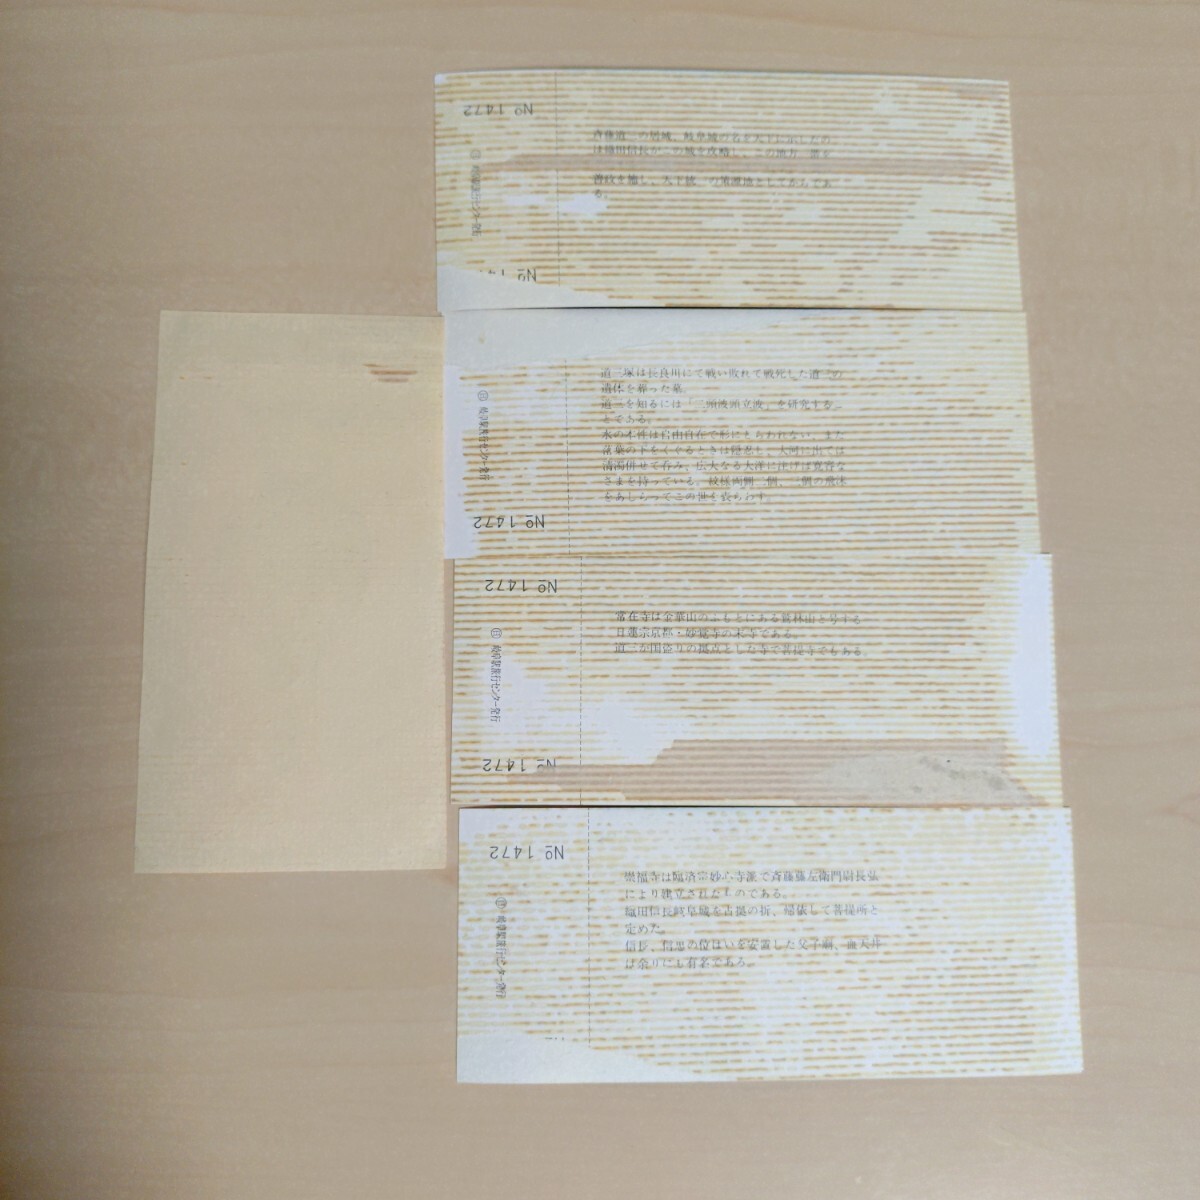 № 1472
斉藤道三の居城、岐阜城の名を天下に示したの
は織田信長がこの城を攻略し、この地方一帯を
善政を施し、天下統一の策源地としてからであ
る。
岐阜駅旅行センター発行
№ 1472
道三塚は長良川にて戦い敗れて戦死した道三の
遺体を葬った墓。
道三を知るには「三頭波頭立波」を研究するこ
とである。
水の本性は自由自在で形にとらわれない、また
落葉の下をくぐるときは隠忍と、大河に出ては
清濁併せて呑み、広大なる大洋に注げば寛容な
さまを持っている。紋様両側二個、三個の飛沫
をあしらってこの世を表わす。
岐阜駅旅行センター発行
№ 1472
№ 1472
常在寺は金華山のふもとにある鷲林山と号する
日蓮宗京都・妙覚寺の末寺である。
道三が国盗りの拠点とした寺で菩提寺でもある。
岐阜駅旅行センター発行
№ 1472
№ 1472
崇福寺は臨済宗妙心寺派で斉藤藤左衛門尉長弘
により建立されたものである。
織田信長岐阜城を占拠の折、帰依して菩提所と
定めた。
信長、信忠の位はいを安置した父子廟、血天井
は余りにも有名である。
岐阜駅旅行センター発行